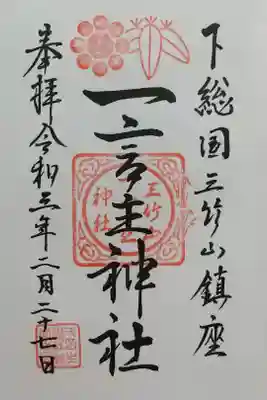 下総国三竹山鎮座
一言主神社
奉拝令和三年二月二十七日